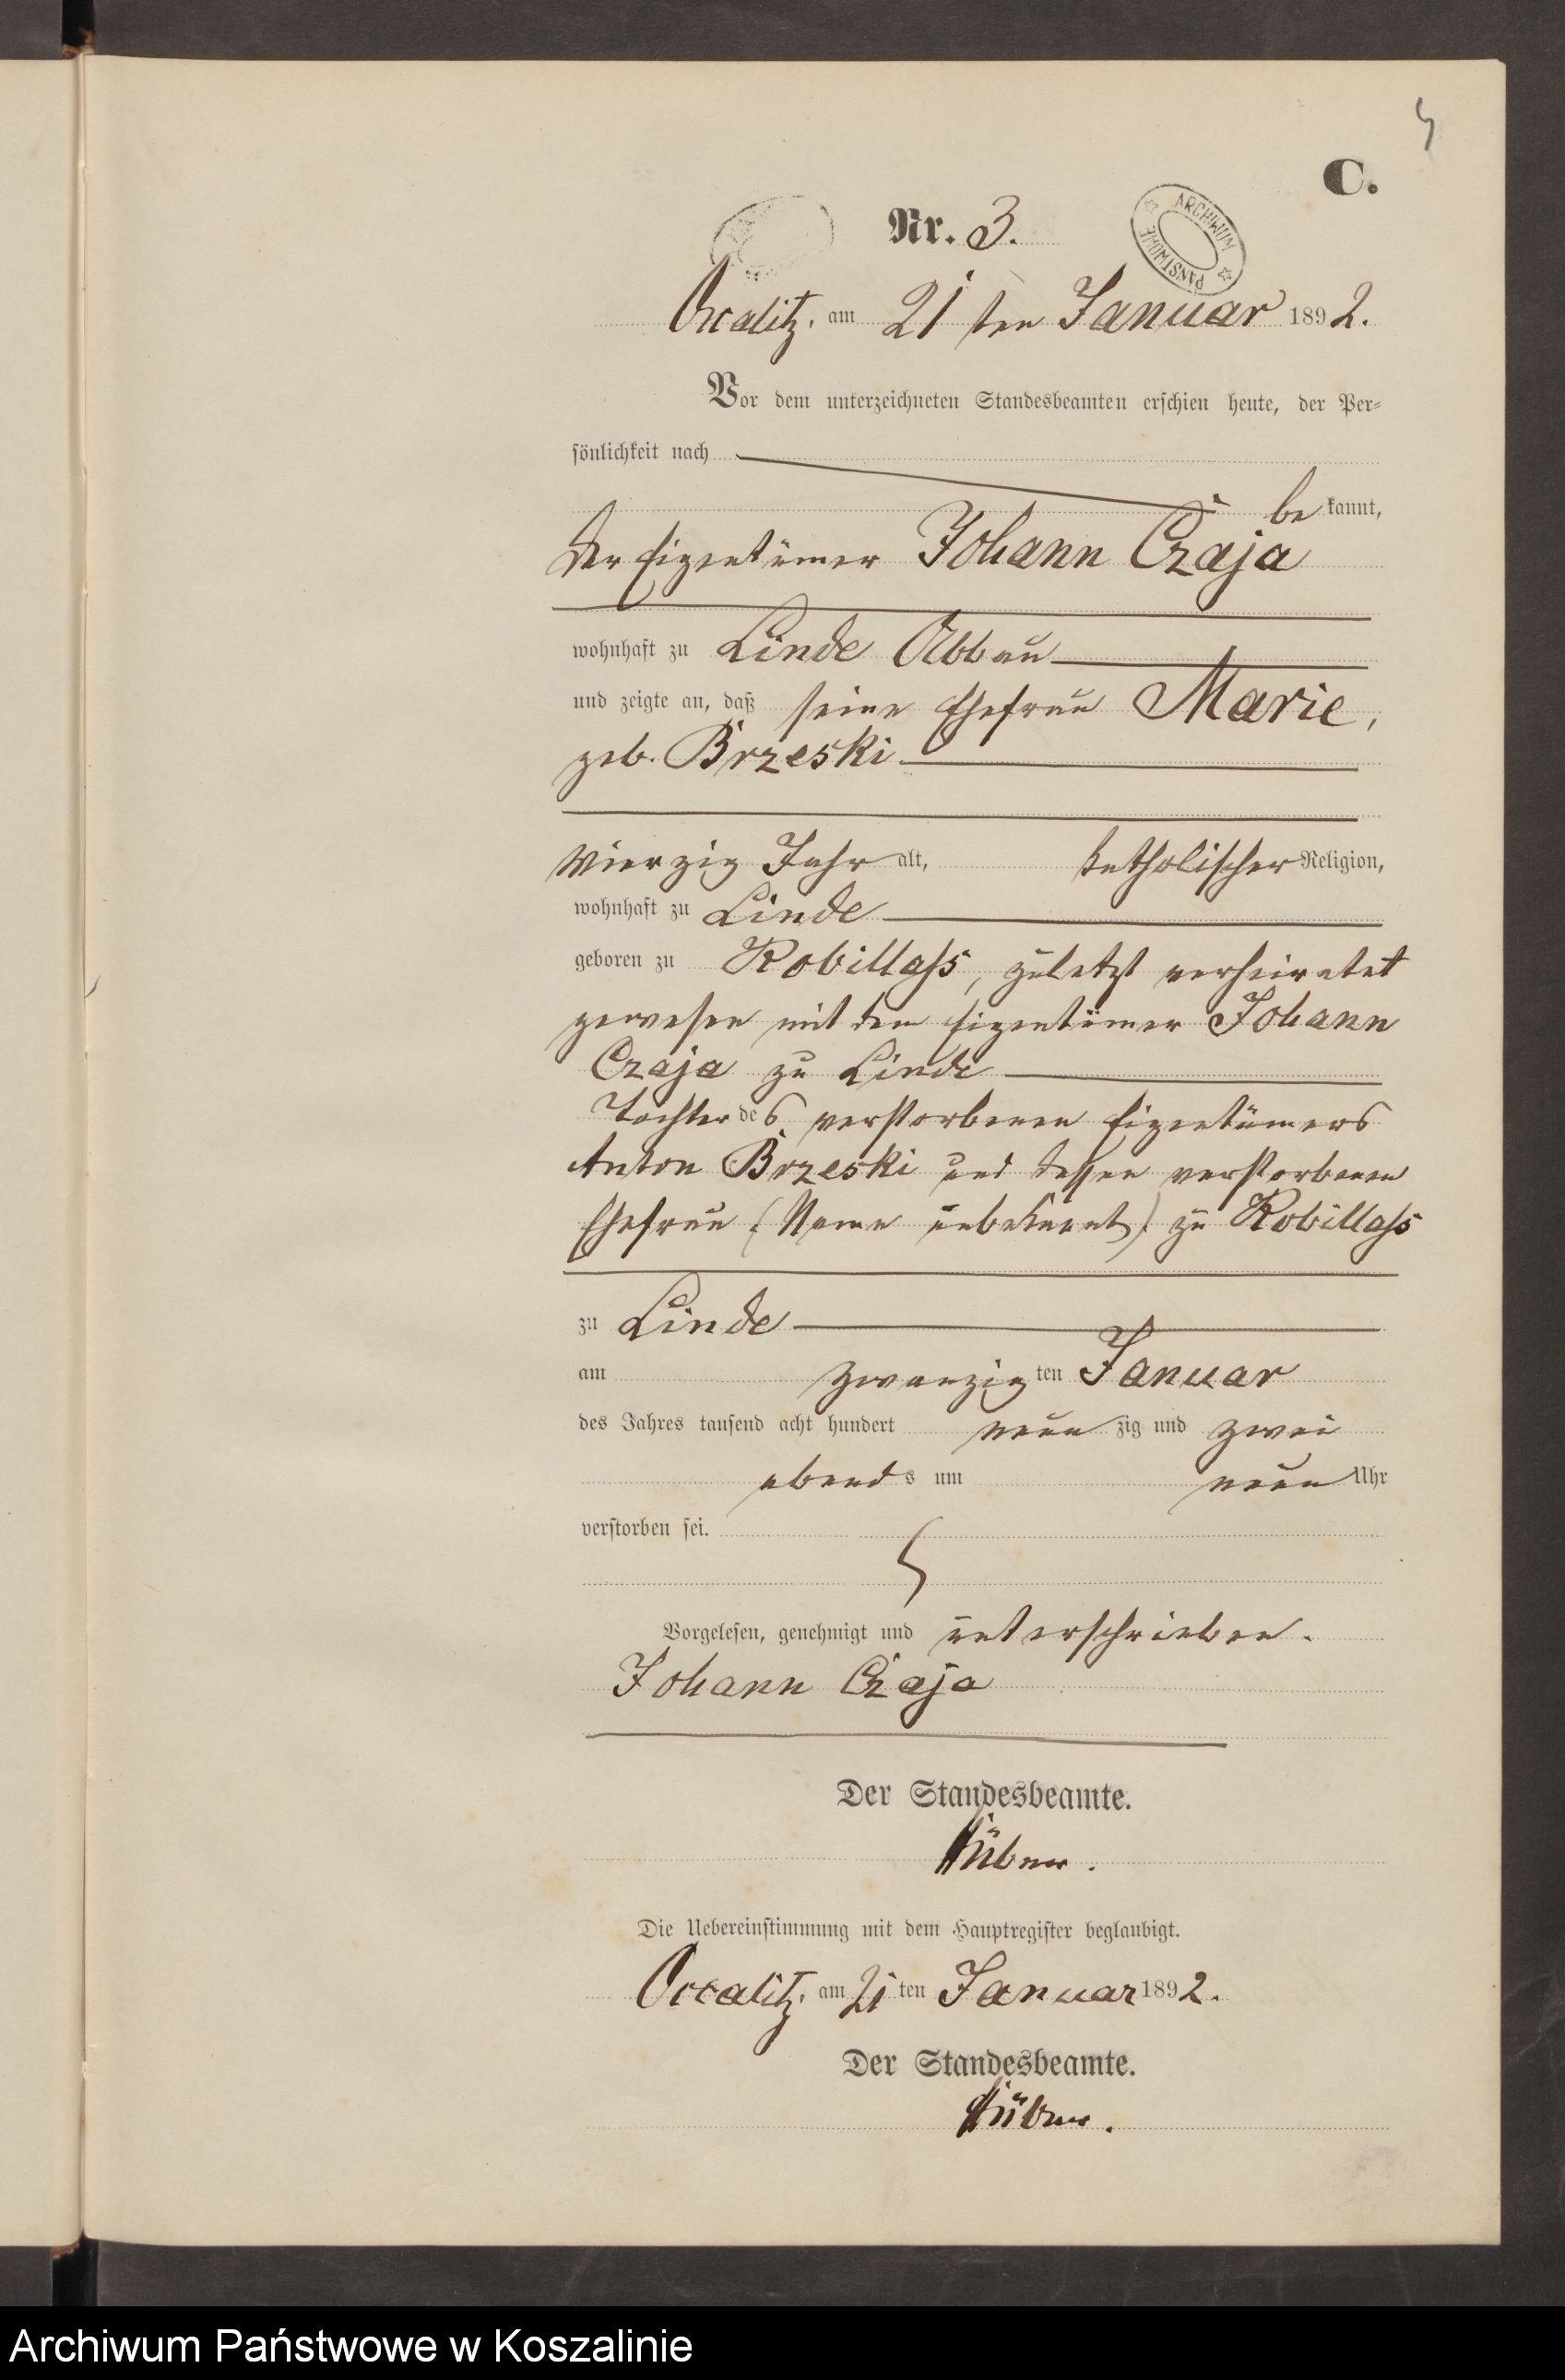 C.
Nr. 3.
ARCHIWUM PAŃSTWOWE
Occalitz, am 21 ten Januar 1892.
Vor dem unterzeichneten Standesbeamten erschien heute, der Per-
sönlichkeit nach
be kannt,
der Eigentümer Johann Czaja
wohnhaft zu Linde Abbau
und zeigte an, daß seine Ehefrau Marie,
geb. Brzeski
vierzig Jahr alt, katholischer Religion,
wohnhaft zu Linde
geboren zu Robillass, zuletzt verheiratet
gewesen mit dem Eigentümer Johann
Czaja zu Linde
Tochter des verstorbenen Eigentümers
Anton Brzeski und dessen verstorbenen
Ehefrau (Name unbekannt) zu Robillass
zu Linde
am zwanzig ten Januar
des Jahres tausend acht hundert neun zig und zwei
abend s um neun Uhr
verstorben sei.
Vorgelesen, genehmigt und unterschrieben.
Johann Czaja
Der Standesbeamte.
Die Uebereinstimmung mit dem Hauptregister beglaubigt.
Occalitz, am 21 ten Januar 1892.
Der Standesbeamte.
Archiwum Państwowe w Koszalinie